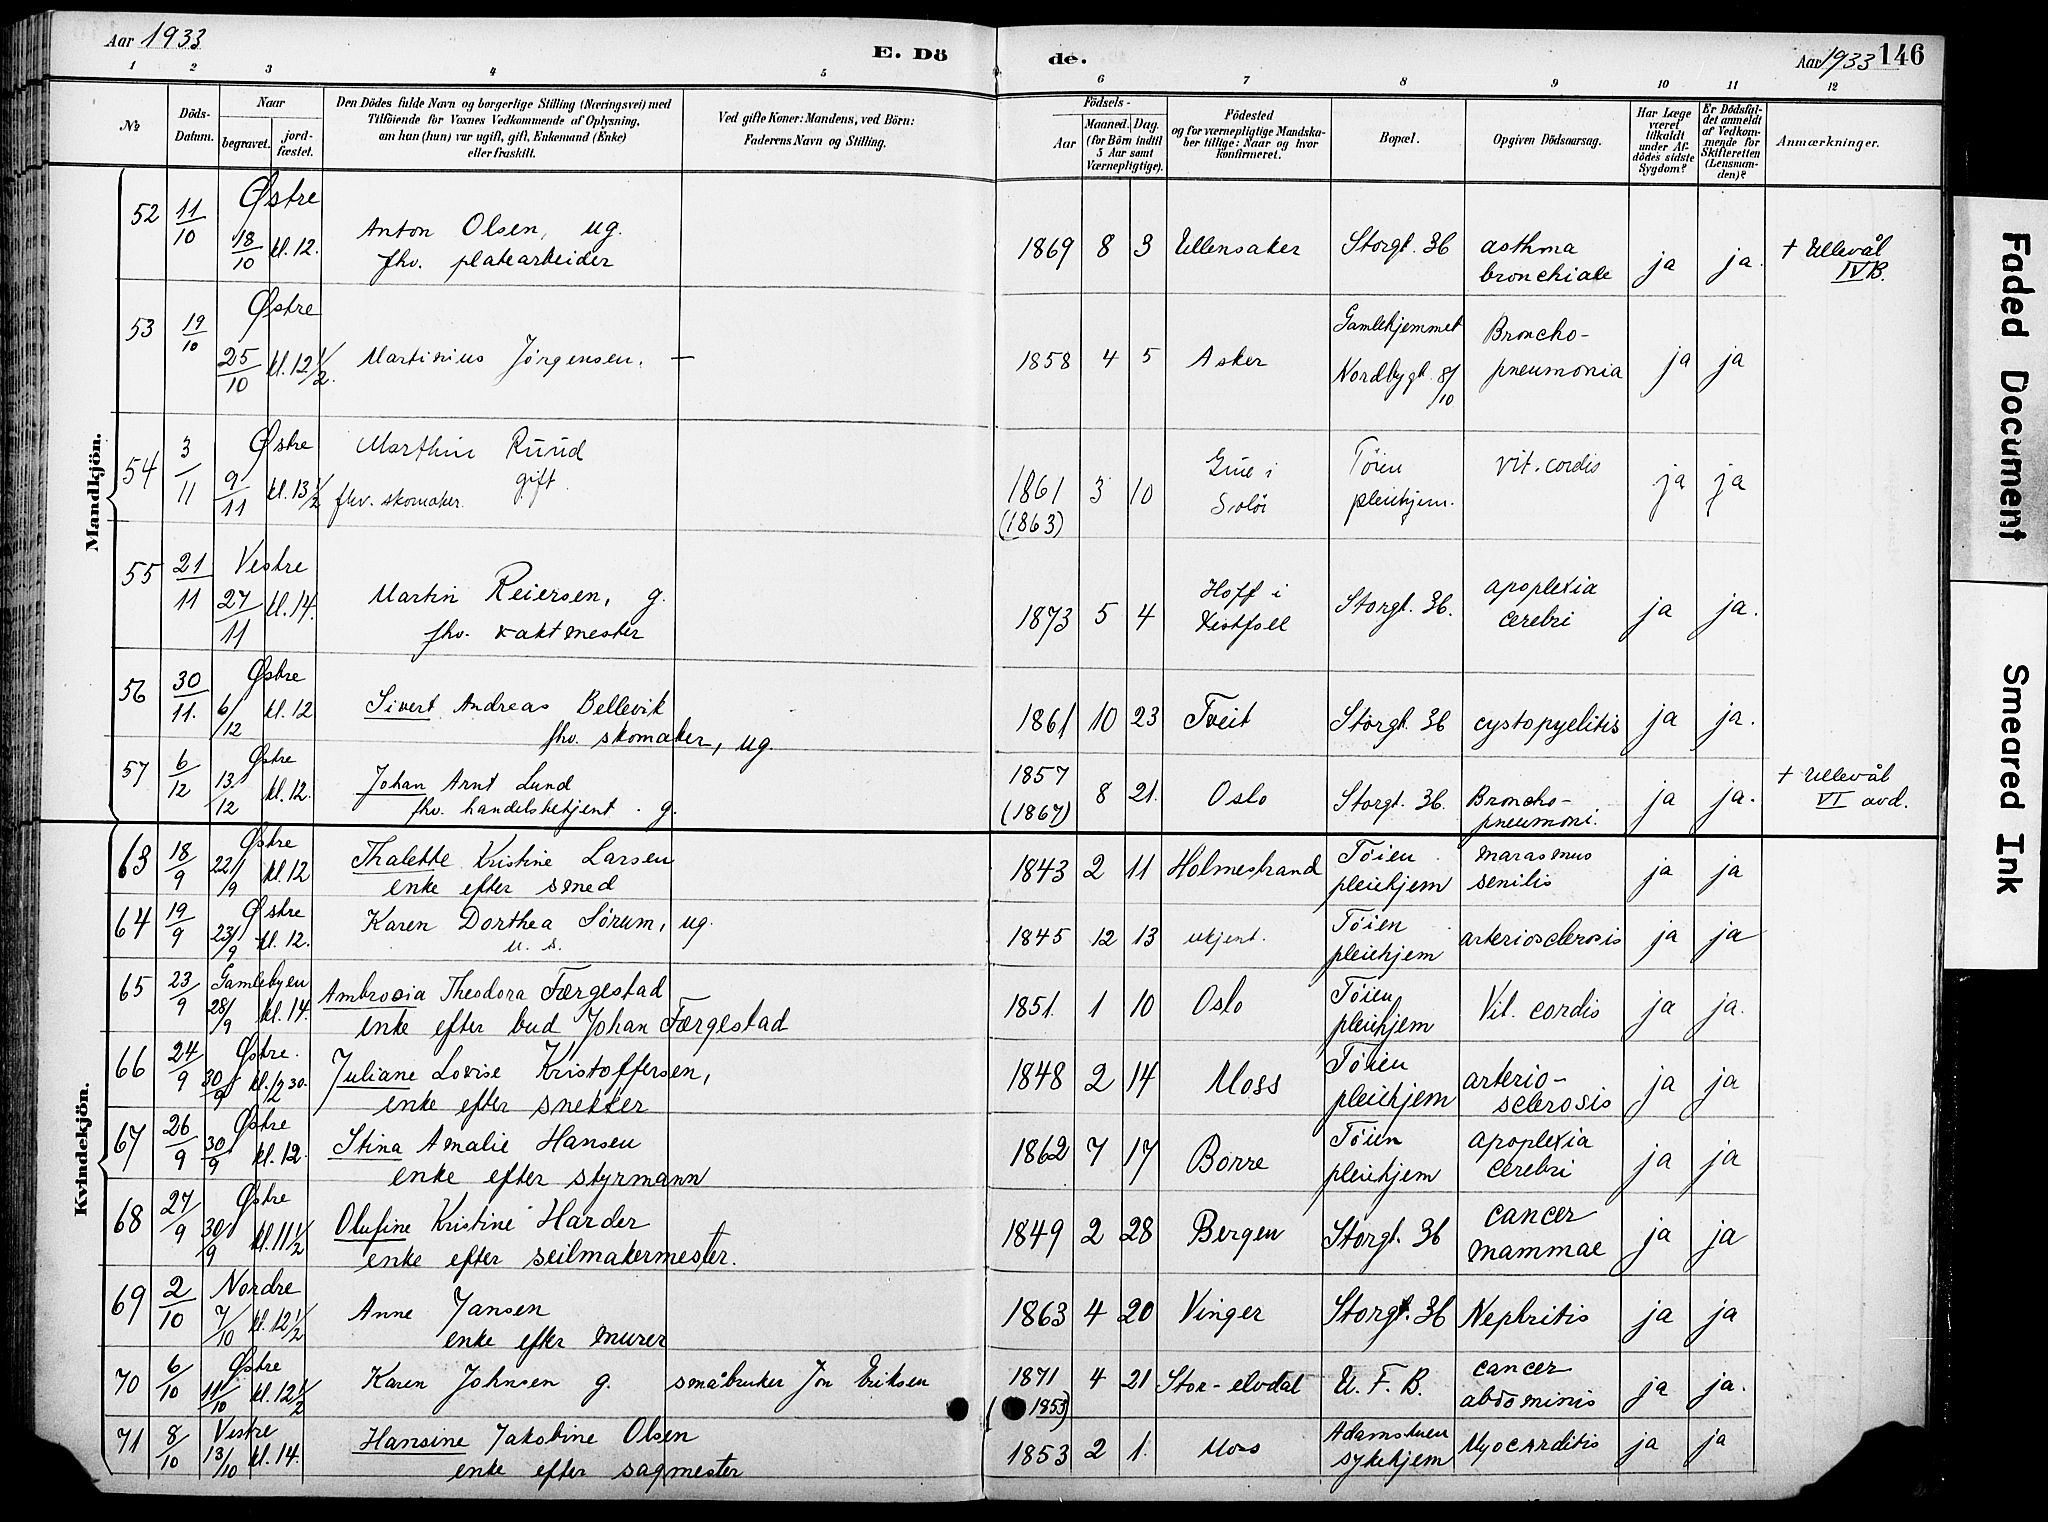 Aar 1933
E. Dö
de.
Aar 1933 146
1 2 3 4 5 6 7 8 9 10 11 12
№
Döds-
Datum.
Naar
begravet.
jord-
fæstet.
Den Dödes fulde Navn og borgerlige Stilling (Næringsvei) med
Tilföiende for Voxnes Vedkommende af Oplysning,
om han (hun) var ugift, gift, Enkemand (Enke)
eller fraskilt.
Ved gifte Koner: Mandens, ved Börn:
Faderens Navn og Stilling.
Födsels-
Aar
Maaned. Dag.
(for Börn indtil
5 Aar samt
Værnepligtige).
Födested
og for værnepligtige Mandska-
ber tillige: Naar og hvor
konfirmeret.
Bopæl.
Opgiven Dödsaarsag.
Har Læge
været
tilkaldt
under Af-
dödes sidste
Sygdom?
Er Dödsfal-
det anmeldt
af Vedkom-
mende for
Skifteretten
(Lensman-
den)?
Anmærkninger.
Mandkjön.
52 11/10 Østre
18/10 kl. 12. Anton Olsen, ug. 1869 8 3 Ullensaker Storgt. 36 asthma ja ja. + Ullevål
fhv. platearbeider bronchiale IVB.
53 19/10 Østre Gamlehjemmet Broncho-
25/10 kl. 12 1/2. Martinius Jørgensen. — 1858 4 5 Asker Nordbygt. 8/10 pneumonia ja ja
54 3/11 Østre Marthin Ruud Grue i Tøien vit. cordis
9/11 kl. 13 1/2 fhv. skomaker. gift. 1861 3 10 Solør pleiehjem. ja ja
(1863)
55 21/11 Vestre Hoff i apoplexia
27/11 kl. 14. Martin Reiersen, g. 1873 5 4 Vestfoll Storgt. 36. cerebri ja ja.
fhv. vaktmester
56 30/11. Østre
6/12 kl. 12 Sivert Andreas Bellevik 1861 10 23 Tveit Storgt. 36 cystopyelitis ja ja.
fhv. skomaker, ug.
57 6/12 Østre 1857 + Ullevål
13/12 kl. 12. Johan Arnt Lund (1867) 8 21. Oslo Storgt. 36. Broncho- ja ja. VI avd.
fhv. handelsbetjent. g. pneumoni.
Kvindekjön.
63 18/9 Østre
22/9 kl. 12 Thalette Kristine Larsen 1843 2 11 Holmestrand Tøien marasmus ja ja
enke efter smed pleiehjem senilis
64 19/9 Østre
23/9 kl. 12. Karen Dorthea Sørum, ug. 1845 12 13 ukjent. Tøien arteriosclerosis ja ja
u. s. pleiehjem
65 23/9 Gamlebyen
28/9 kl. 14. Ambrosia Theodora Færgestad 1851. 1 10 Oslo Tøien Vit. cordis ja ja.
enke efter bud Johan Færgestad pleiehjem
66 24/9 Østre.
30/9 kl. 12 30. Juliane Lovise Kristoffersen, 1848 2 14 Moss Tøien arterio- ja ja
enke efter snekker pleiehjem sclerosis
67 26/9 Østre
30/9 kl. 12. Stina Amalie Hansen 1862 7 17 Borre Tøien apoplexia ja ja
enke efter styrmann pleiehjem cerebri
68 27/9 Østre
30/9 kl. 11 1/2 Olufine Kristine Harder 1849 2 28 Bergen Storgt. 36 cancer ja ja
enke efter seilmakermester. mammae
69 2/10 Nordre
7/10 kl. 12 1/2 Anne Jansen 1863 4 20 Vinger Storgt. 36 Nephritis ja ja
enke efter murer
70 6/10 Østre
11/10 kl. 12 1/2 Karen Johnsen g. småbruker Jon Eriksen 1871 4 21 Stor-elvdal U. F. B. cancer ja ja.
(1853) abdominis
71 8/10 Vestre
13/10 kl. 14. Hansine Jakobine Olsen 1853 2 1. Moss Adamstuen Myocarditis ja ja
enke efter sagmester sykehjem
Faded Document
Smeared Ink